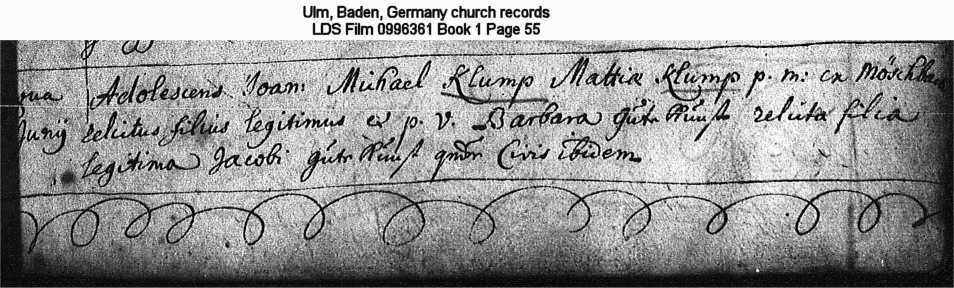 Ulm, Baden, Germany church records
LDS Film 0996361 Book 1 Page 55
Adolescens Joan: Michael Klump Mattiæ Klump p. m: ex Möschbach
Junÿ relictus filius legitimus et p. v. Barbara relicta filia
legitima Jacobi qndr Civis ibidem